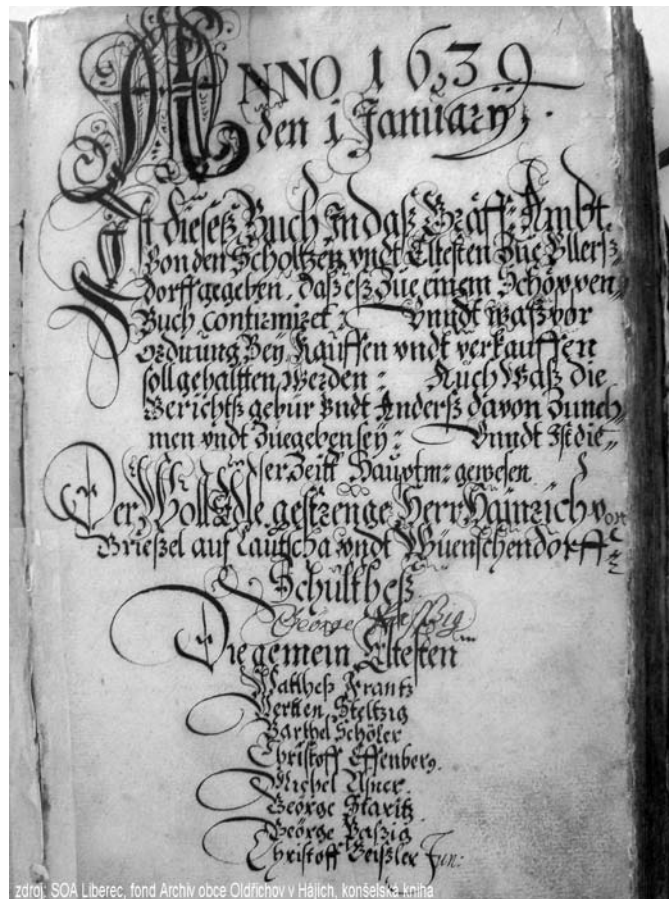 ANNO 1639
den 1 January.
Ist dieseß Buch In daß Gräff: Ambt.
Von den Scholtzen vndt Eltesten Zue Vllerß-
dorff gegeben, daß eß Zue einem Schöppen,,
Buch confirmiret: Vnndt waß vor
Ordnung Bey Kauffen vndt verkauffen
soll gehaltten Werden: Auch Waß die
Gerichtß gebür Vndt Anderß davon Zuneh,,
men vndt Zuegeben sey: Vnndt Ist die,,
ser Zeitt Hauptm: gewesen
Der Woll Edle gestrenge Herr Hainrich von
Grießel auf Lautscha vndt Wüenschendorff:
Schultheß
George
Die gemein Eltesten
Mattheß Frantz
Merten Steltzig
Barthel Schöler
Christoff Effenberg.
Michel
George Staritz
George Paßzig
Christoff Beißler Jun:
zdroj: SOA Liberec, fond Archiv obce Oldřichov v Hájích, konšelská kniha